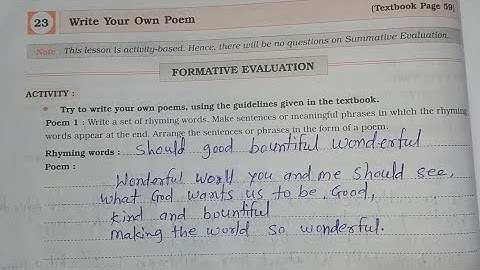 (Textbook Page 59)
23 Write Your Own Poem
Note : This lesson is activity-based. Hence, there will be no questions on Summative Evaluation.
FORMATIVE EVALUATION
ACTIVITY :
• Try to write your own poems, using the guidelines given in the textbook.
Poem 1 : Write a set of rhyming words. Make sentences or meaningful phrases in which the rhyming
words appear at the end. Arrange the sentences or phrases in the form of a poem.
Rhyming words : Should good bountiful wonderful
Poem :
Wonderful world you and me should see,
what God wants us to be. Good,
kind and bountiful
making the world so wonderful.